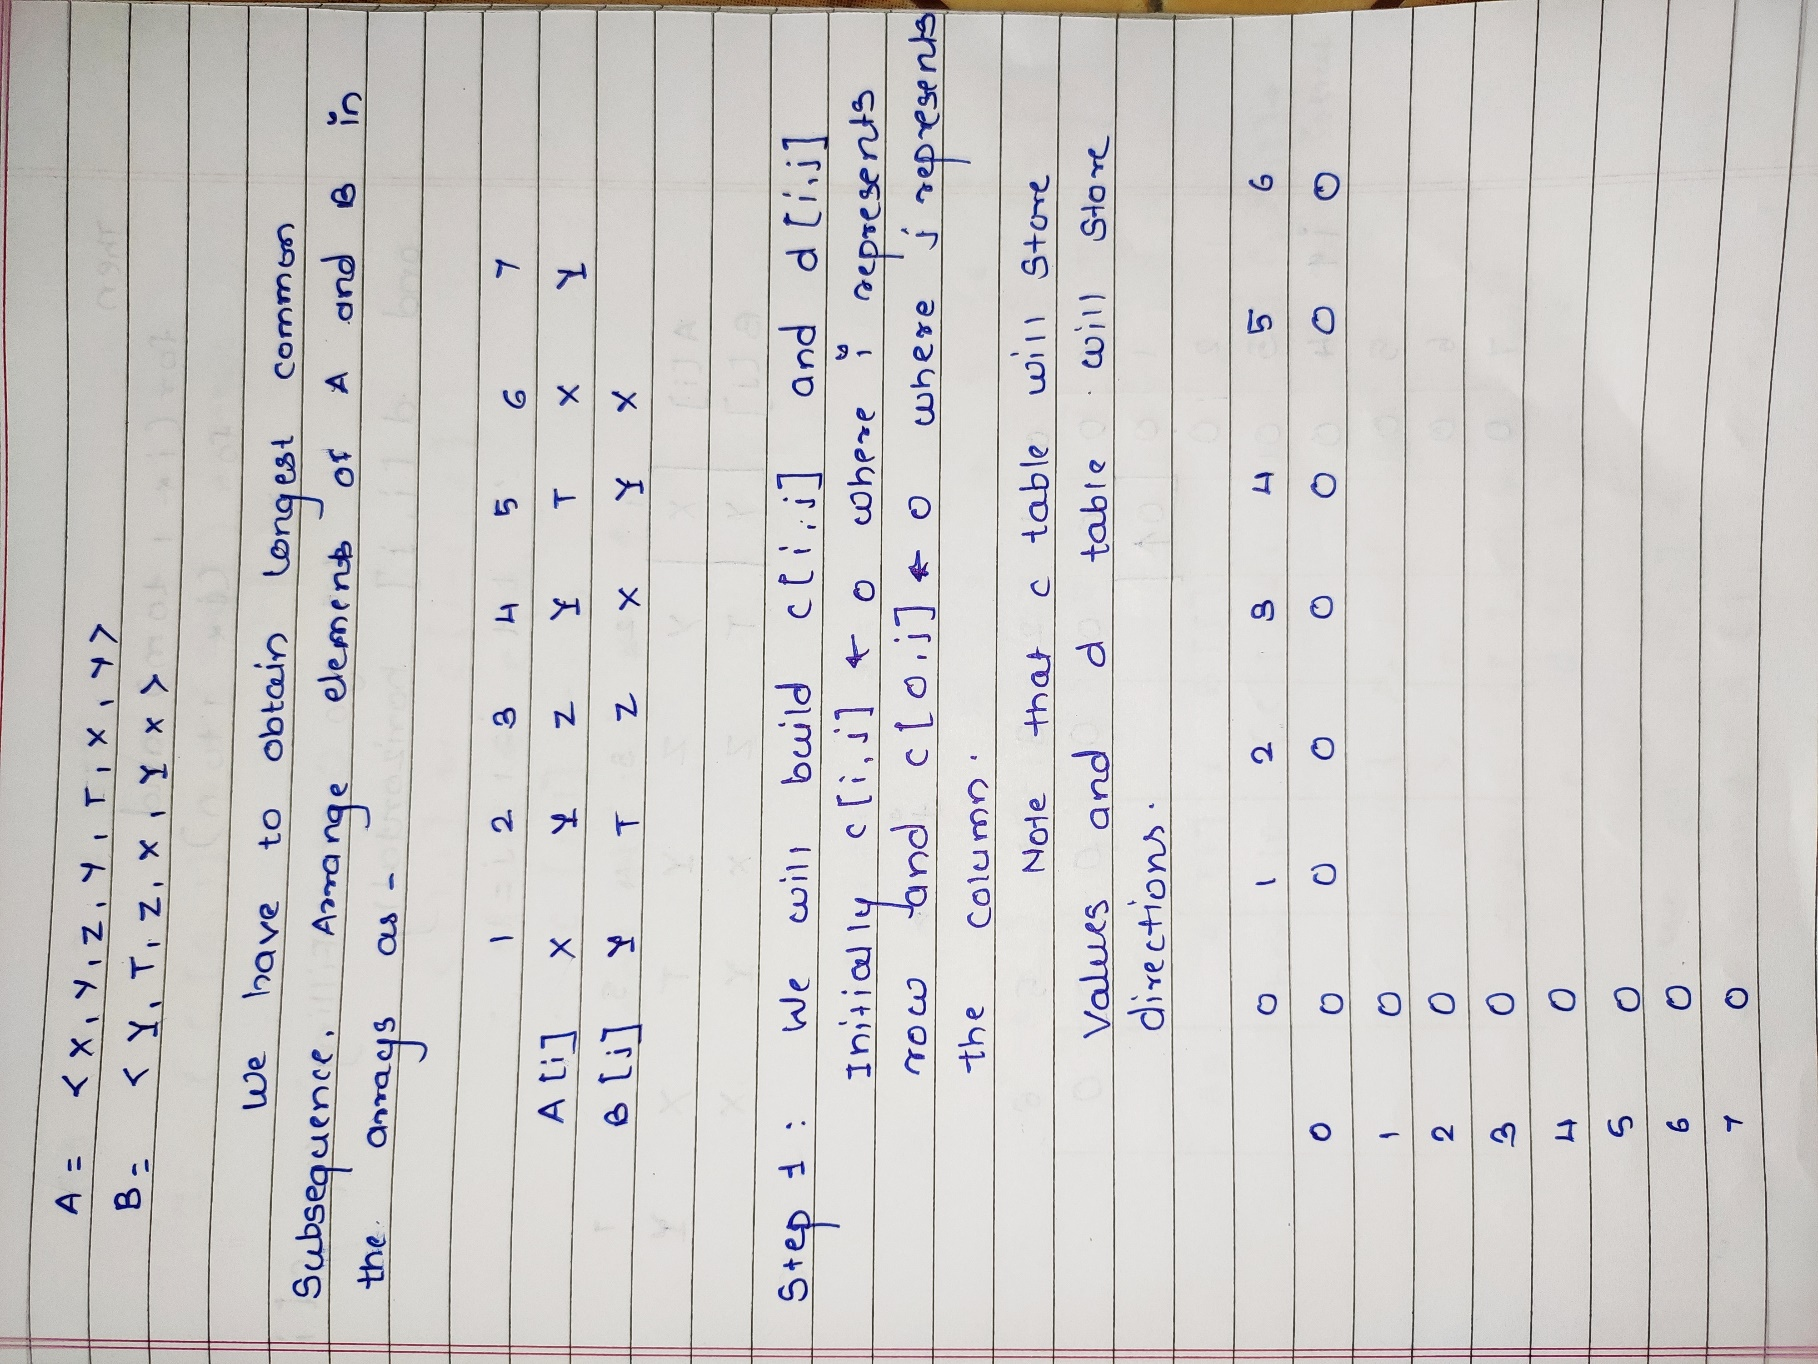 A = < X, Y, Z, Y, T, X, Y >
B = < Y, T, Z, X, Y X >
We have to obtain longest common
Subsequence. Arrange elements of A and B in
the arrays as -
1 2 3 4 5 6 7
A [i] X Y Z Y T X Y
B [j] Y T Z X Y X
Step 1 : We will build c[i,j] and d[i,j]
Initially c[i,j] ← 0 where i represents
row and c[0,j] ← 0 where j represents
the column.
Note that c table will store
Values and d table will store
directions.
0 1 2 3 4 5 6
0 0 0 0 0 0 0 0
1 0
2 0
3 0
4 0
5 0
6 0
7 0